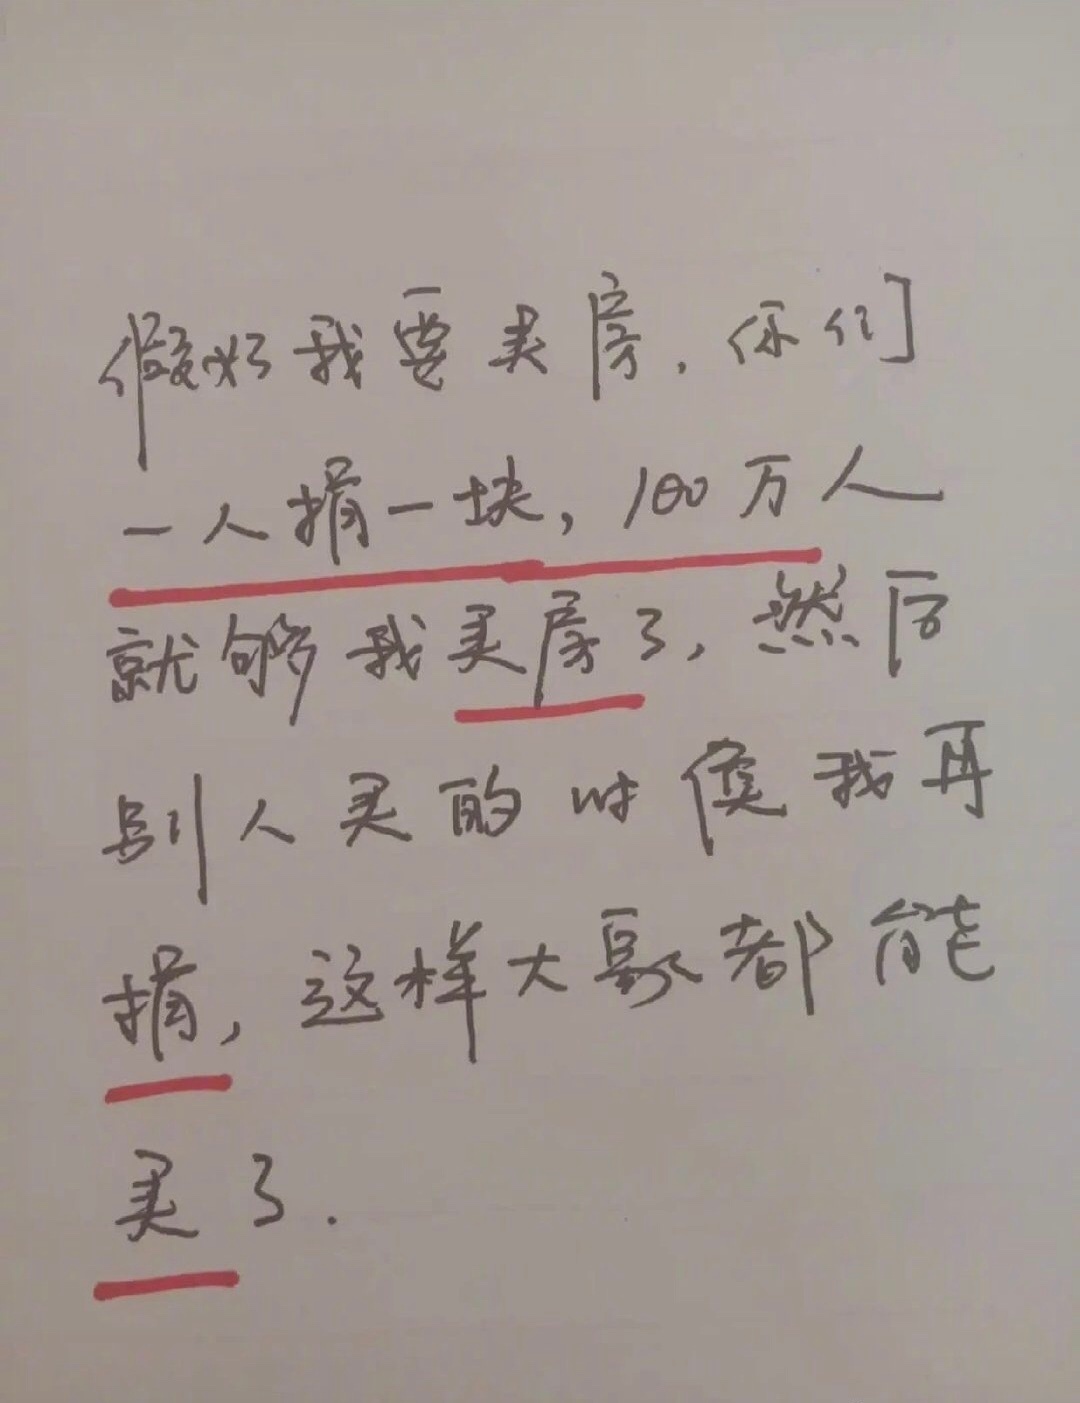 假如我要买房，你们
一人捐一块，100万人
就够我买房了，然后
别人买的时候我再
捐，这样大家都能
买了.